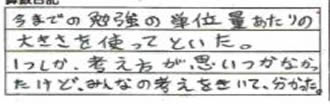 今までの勉強の単位量あたりの
大きさを使ってといた。
1つしか、考え方が、思いつかなかっ
たけど、みんなの考えをきいて、分かった。